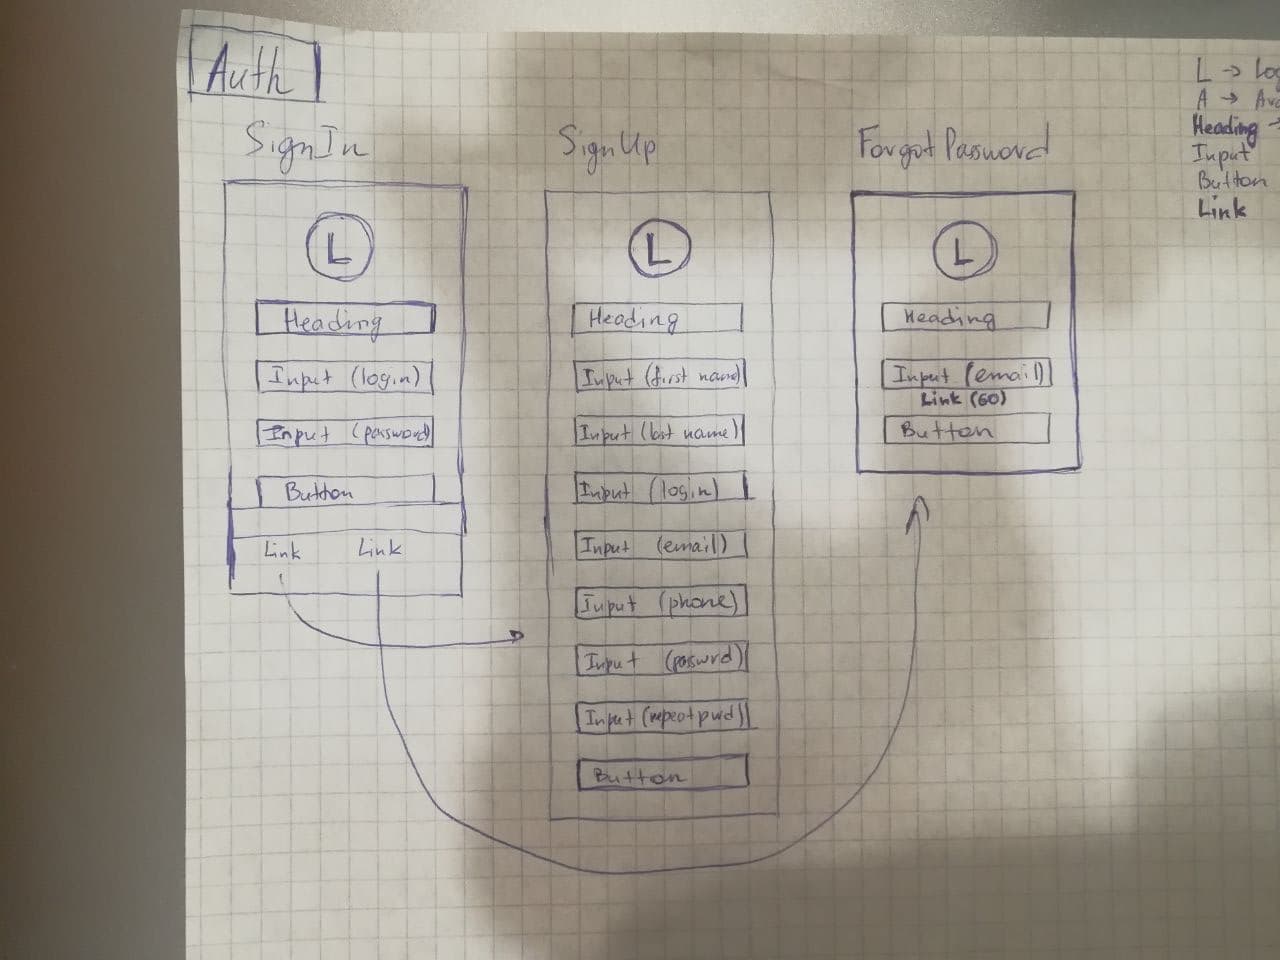 Auth
SignIn
L
Heading
Input (login)
Input (password)
Button
Link Link
SignUp
L
Heading
Input (first name)
Input (last name)
Input (login)
Input (email)
Input (phone)
Input (passwrd)
Input (repeat pwd)
Button
Forgot Password
L
Heading
Input (email)
Link (60)
Button
L → Log
A → Ava
Heading →
Input
Button
Link